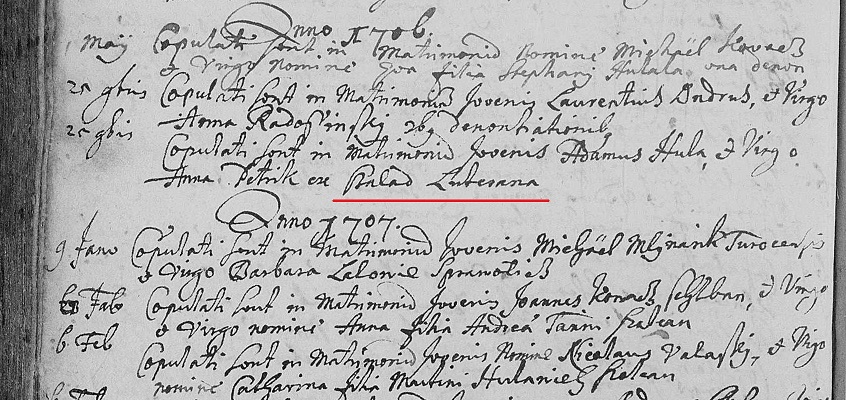 Anno 1706.
1 May Copulati sunt in Matrimoniũ Nomine Michaël Kovacz
& Virgo Nomine Eva filia Stephani Hulala una denon
25 9bris Copulati sunt in Matrimoniũ Jovenis Laurentius Ondrus, & Virgo
Anna Radossinskj denontiationib
25 9bris Copulati sunt in Matrimoniũ Jovenis Adamus Hula, & Virgo
Anna Petrik ex Lutesana
Anno 1707.
9 Jano Copulati sunt in Matrimoniũ Jovenis Michaël Mlÿnarik Turocensis
& Virgo Barbara
6 Feb Copulati sunt in Matrimoniũ Jovenis Joannes Kovacz & Virgo
& Virgo nomine Anna filia Andreä
6 Feb Copulati sunt in Matrimoniũ Jovenis Nomine Nicolaus Valaskj, & Virgo
nomine Catharina filia Martini